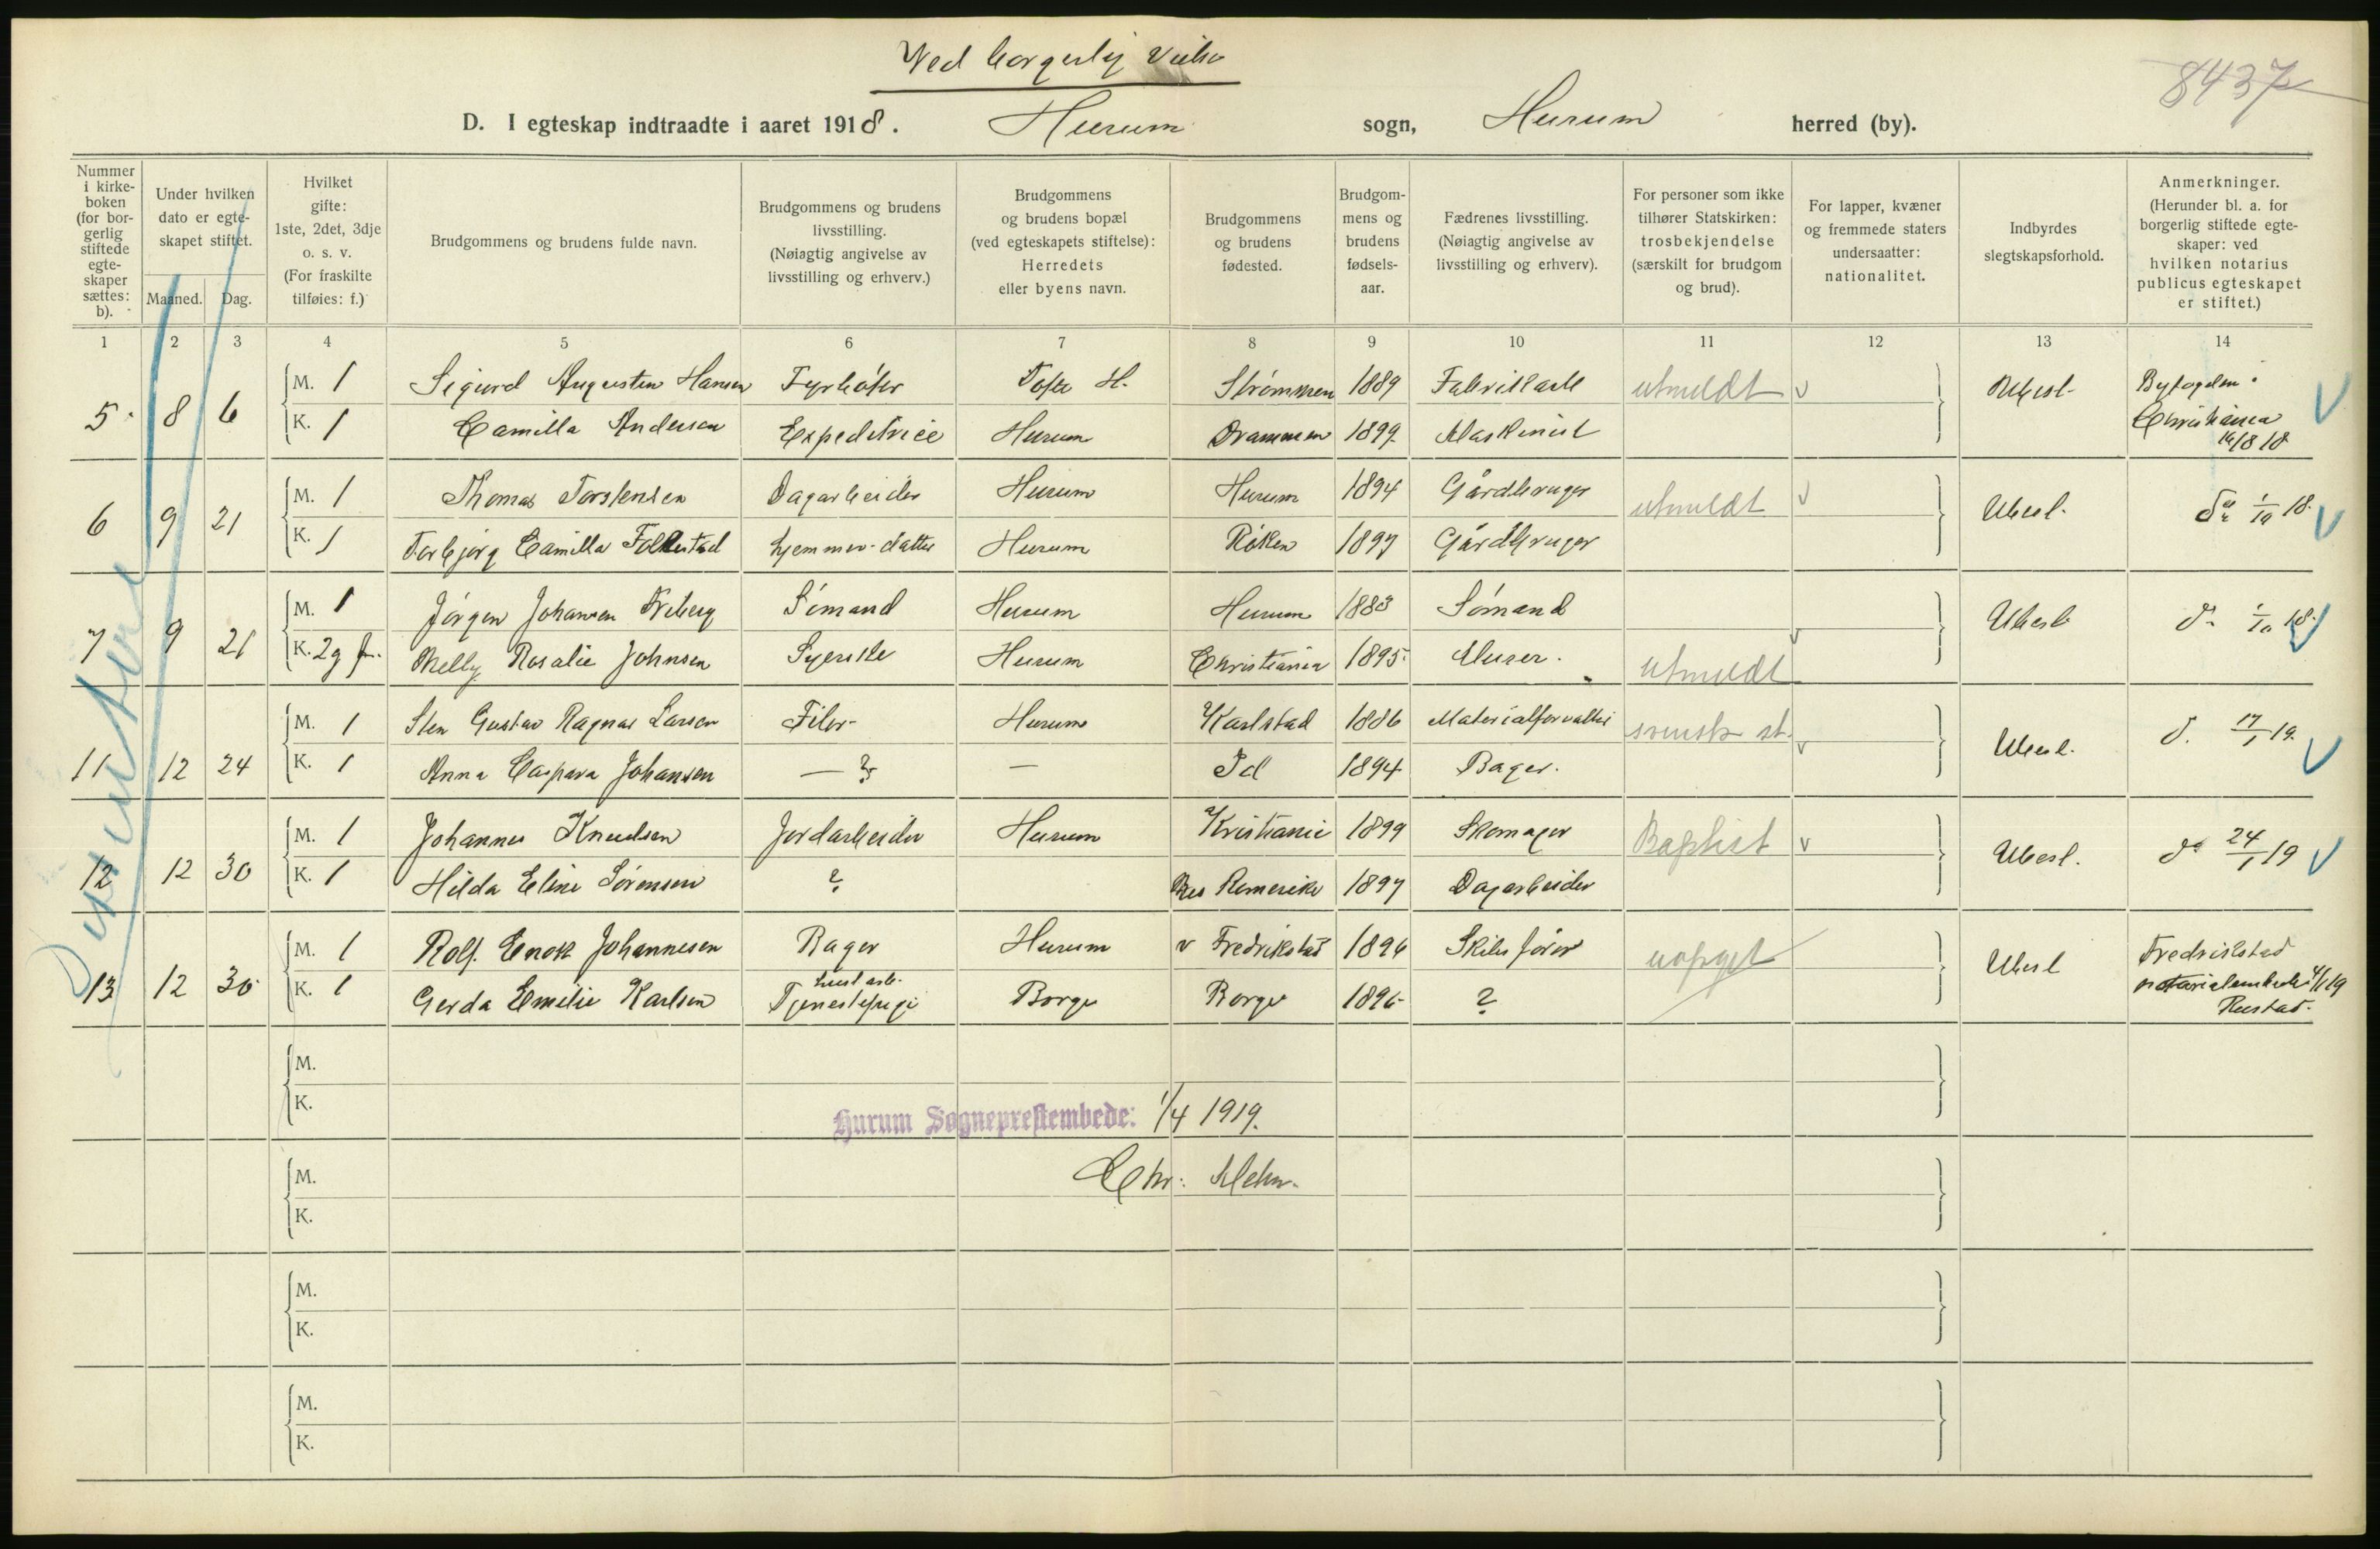 Ved borgerlig Vielse
8437
D. I egteskap indtraadte i aaret 1918. Hurum sogn, Hurum herred (by).
Nummer i kirkeboken (for borgerlig stiftede egteskaper sættes: b).
Under hvilken dato er egteskapet stiftet.
Maaned. Dag.
Hvilket gifte: 1ste, 2det, 3dje o. s. v. (For fraskilte tilføies: f.)
Brudgommens og brudens fulde navn.
Brudgommens og brudens livsstilling. (Nøiagtig angivelse av livsstilling og erhverv.)
Brudgommens og brudens bopæl (ved egteskapets stiftelse): Herredets eller byens navn.
Brudgommens og brudens fødested.
Brudgommens og brudens fødselsaar.
Fædrenes livsstilling. (Nøiagtig angivelse av livsstilling og erhverv).
For personer som ikke tilhører Statskirken: trosbekjendelse (særskilt for brudgom og brud).
For lapper, kvæner og fremmede staters undersaatter: nationalitet.
Indbyrdes slegtskapsforhold.
Anmerkninger. (Herunder bl. a. for borgerlig stiftede egteskaper: ved hvilken notarius publicus egteskapet er stiftet.)
1 2 3 4 5 6 7 8 9 10 11 12 13 14
5 8 6 M. 1 Sigurd Augustin Hansen Fyrbøter Tofte H. Strømmen 1889 Fabrikarb utmeldt v Ubesl. Byfogden i
K. 1 Camilla Andersen Expeditrice Hurum Drammen 1899 Maskinist Christiania
6 9 21 M. 1 Thomas Torstensen Dagarbeider Hurum Hurum 1894 Gårdbruger utmeldt v Ubesl. do 1/10 18.
K. 1 Torbjørg Camilla Follestad hjemmev. datter Hurum Røken 1897 Gårdbruger
7 9 21 M. 1 Jørgen Johansen Sømand Hurum Hurum 1883 Sømand Ubesl. do 1/10 18.
K. 2g f. Nelly Rosalie Johnsen Syerske Hurum Christiania 1895 Murer. utmeldt v
11 12 24 M. 1 Sten Gustav Ragnar Larson Filer Hurum Karlstad 1886 Materialforvalter svensk st. v Ubesl. d. 17/1 19.
K. 1 Anna Caspara Johansen — ? — Id 1894 Bager.
12 12 30 M. 1 Johannes Knudsen Jordarbeider Hurum Kristiania 1899 Skomager Baptist v Ubesl. do 24/1 19
K. 1 Hilda Eline Sørensen ? Nes Romerike 1897 Dagarbeider
13 12 30 M. 1 Rolf Enok Johannesen Bager Hurum v Fredrikstad 1896 Skibsfører uopgit Ubesl Fredrikstad
K. 1 Gerda Emilie Karlsen Tjenestepige Borge Borge 1896 ? notarialembede 4/1 19
Rustad.
M.
K.
Hurum Sogneprestembede: 1/4 1919.
M. Chr: Mehn.
K.
M.
K.
M.
K.